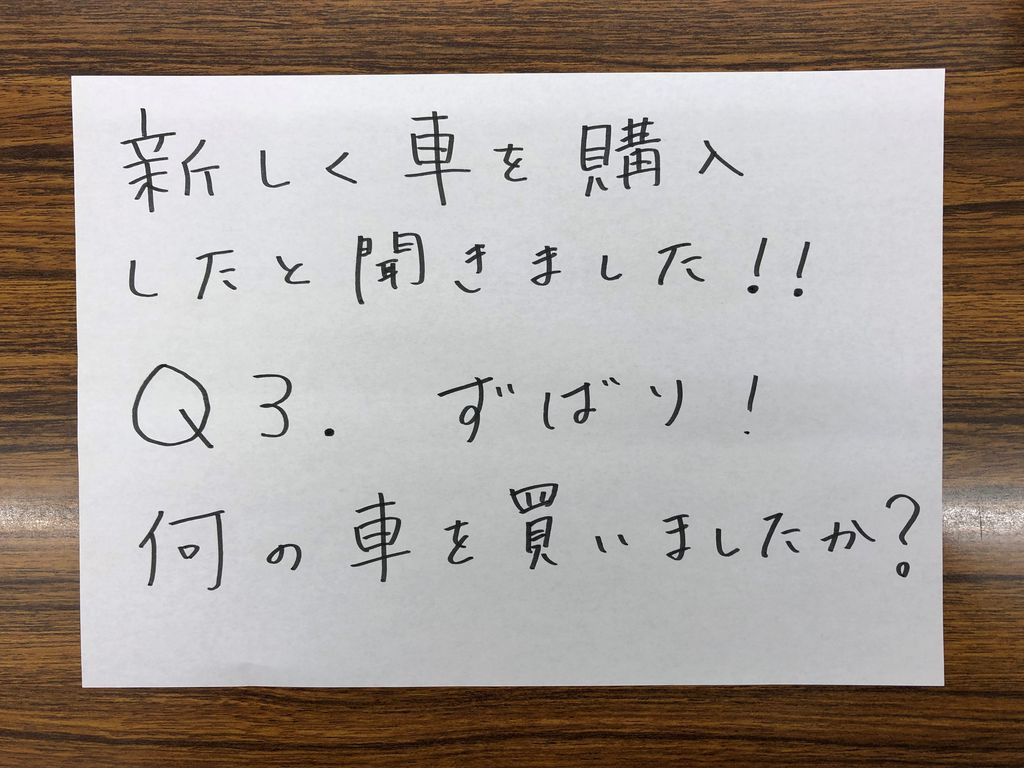 新しく車を購入
したと聞きました!!
Q3. ずばり!
何の車を買いましたか?